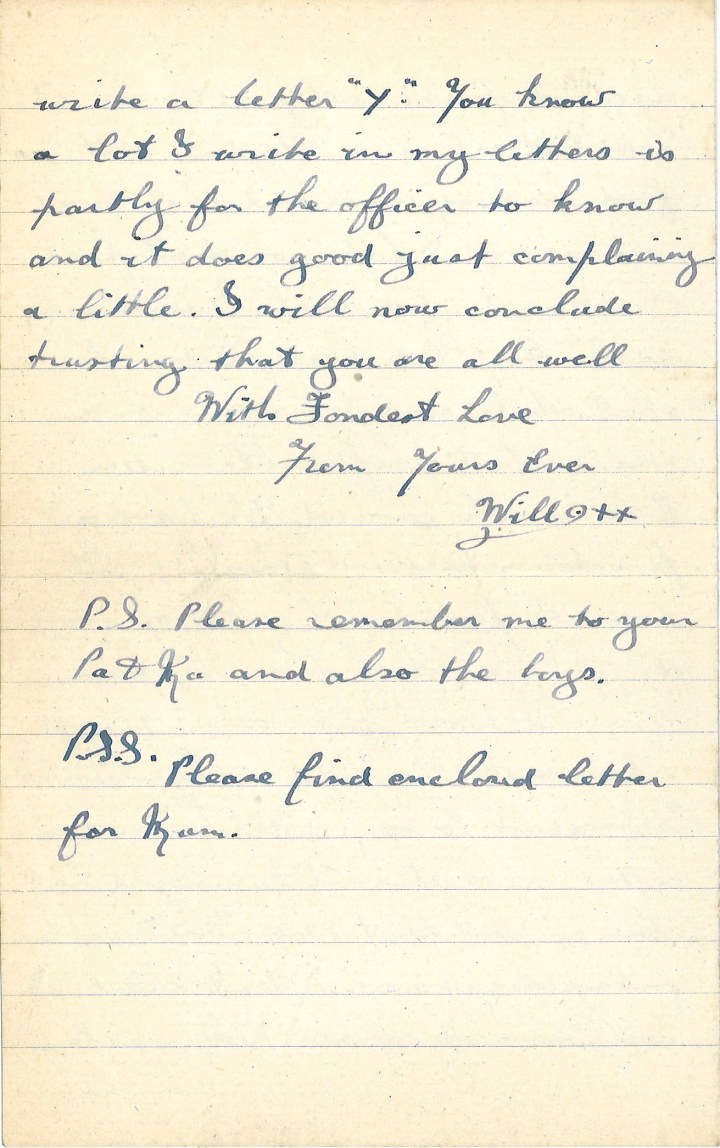 write a letter "Y". You know
a lot I write in my letters is
partly for the officer to know
and it does good just complaining
a little. I will now conclude
trusting that you are all well
With Fondest Love
From Yours Ever
Will
P.S. Please remember me to your
Pa & Ma and also the boys.
P.S.S.
Please find enclosed letter
for Mum.